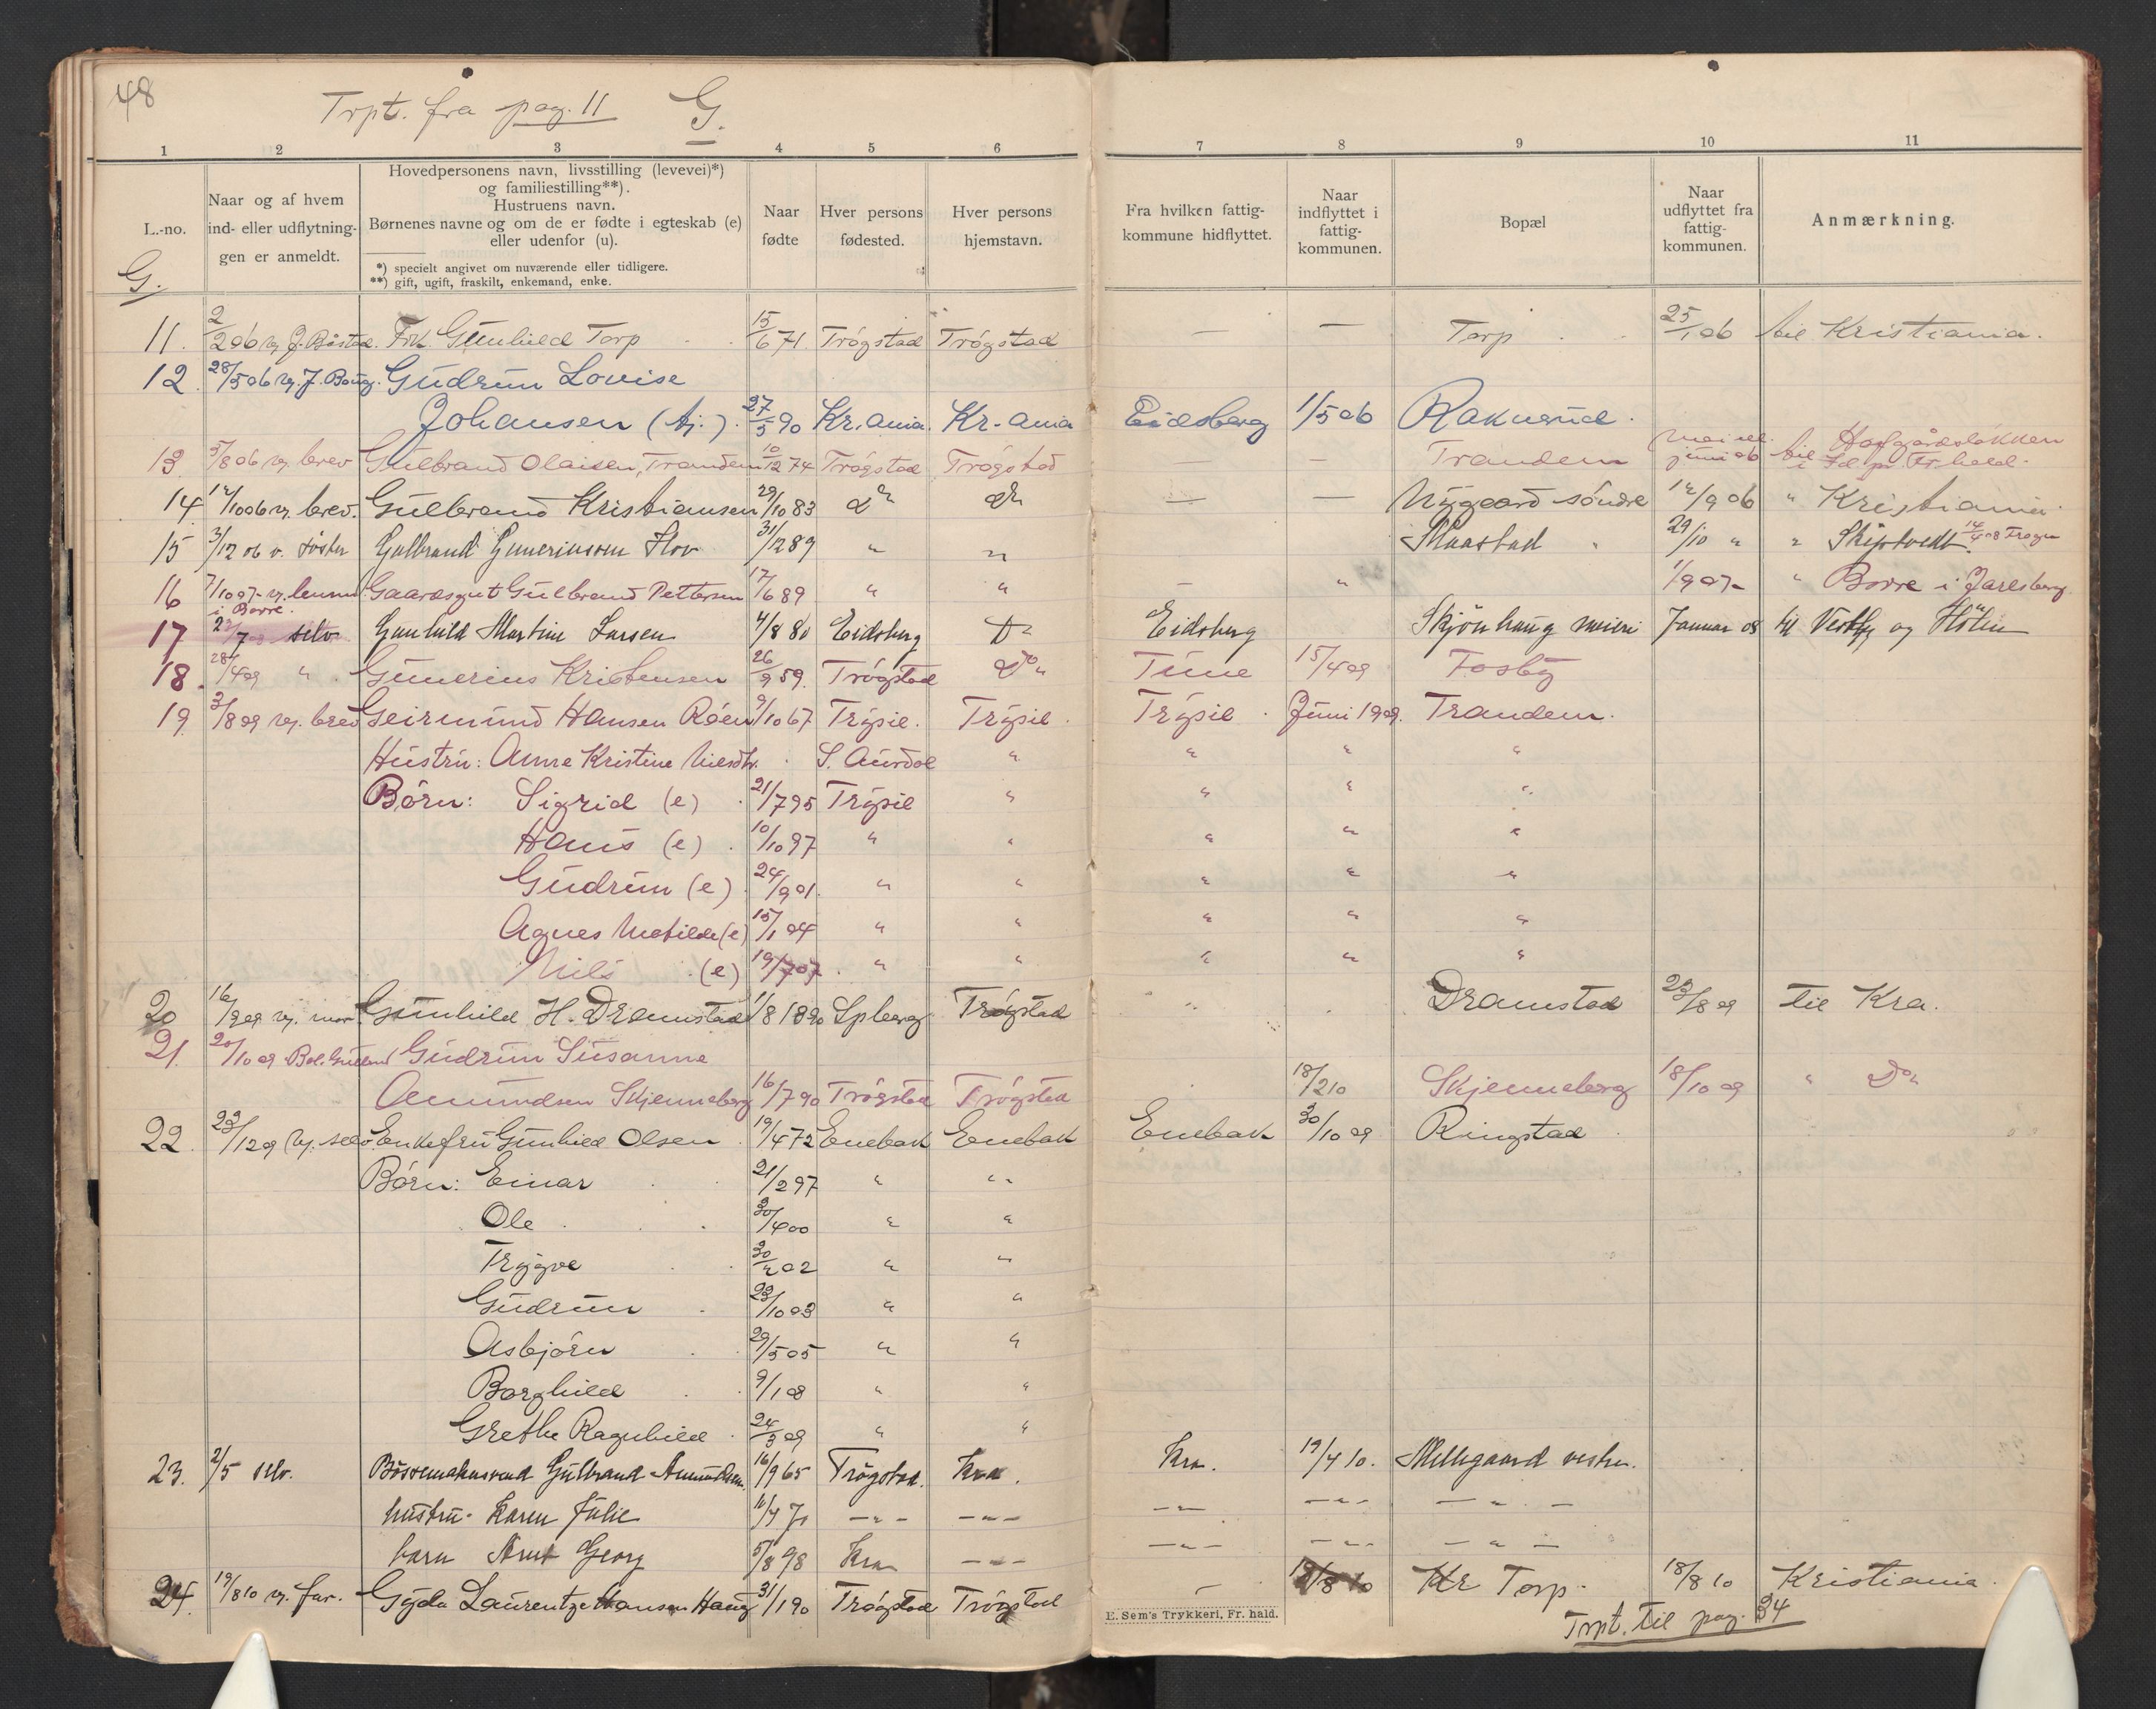 48
Trpt. fra pag. 11 G.
1 2 3 4 5 6 7 8 9 10 11
L.-no.
Naar og af hvem ind- eller udflytningen er anmeldt.
Hovedpersonens navn, livsstilling (levevei)*) og familiestilling**).
Hustruens navn.
Børnenes navne og om de er fødte i egteskab (e) eller udenfor (u).
*) specielt angivet om nuværende eller tidligere.
**) gift, ugift, fraskilt, enkemand, enke.
Naar fødte
Hver persons fødested.
Hver persons hjemstavn.
Fra hvilken fattigkommune hidflyttet.
Naar indflyttet i fattigkommunen.
Bopæl
Naar udflyttet fra fattigkommunen.
Anmærkning.
G.
11. 2/2 06 v. J. Båstad. Frk. Gunhild Torp 15/6 71 Trøgstad Trøgstad — — Torp 25/1 06 til Kristiania.
12. 28/5 06 v. J. Boug. Gudrun Lovise
Johansen (tj.) 27/5 90 Kr.ania Kr.ania Eidsberg 1/5 06 Rakuerud.
13 5/8 06 v. brev Gulbrand Olaisen, Trandem 10/12 74 Trøgstad Trøgstad — — Trandem mai el. juni 06 til Hafgårdsløkken i Id pr. Fr.hald.
14 14/10 06 v. brev. Gulbrand Kristiansen 29/10 83 do do — — Nygaard søndre 12/9 06 " Kristiania.
15 3/12 06 v. søster Gulbrand Guneriussen Slov 31/12 89 " " Skaastad 29/10 " " Skiptvedt. 14/4 08 Frogn
16 7/10 07 v. lensmd. i Borre. Gaardsgut Gulbrand Pettersen 17/6 89 " " — " 1/9 07 " Borre i Jarlsberg
17 23/7 selv Gunhild Martine Larsen 4/8 80 Eidsberg Do Eidsberg Skjønhaug meieri Januar 08 til Vestby og Hølen
18. 28/4 09 " Gunerius Kristensen 26/9 59. Trøgstad Do Tune 15/4 09 Fosby
19. 3/8 09 v. brev Geirmund Hansen Røen 9/10 67 Trysil. Trysil. Trysil. Juni 1909. Trandem.
Hustru: Anne Kristine Nilsdtr. S. Aurdal " " " "
Børn: Sigrid (e) 21/7 95 Trysil " " " "
Hans (e) 10/10 97 " " " " "
Gudrun (e) 24/9 01. " " " " "
Agnes Matilde (e) 15/1 04 " " " " "
Nils (e) 19/7 07 " " " " "
20 16/9 09 v. mor. Gunhild H. Dramstad 1/8 1890 Spberg Trøgstad " Dramstad 23/8 09 til Kra.
21. 20/10 09 Gudrun Susanne
Amundsen Skjenneberg 16/7 90 Trøgstad Trøgstad 18/2 10 Skjenneberg 18/10 09 " Do
22. 23/12 09 v. selv. Enkefru Gunhild Olsen 19/4 72 Enebak Enebak Enebak 30/10 09 Ringstad
Børn: Einar 21/2 97 " "
Ole 30/4 00 " "
Trygve 30/4 02 " "
Gudrun 23/10 03 " "
Asbjørn 29/5 05 " "
Borghild 9/1 08 " "
Grethe Ragnhild 24/3 09 " "
23. 2/5 selv. Bøssemakersvend Gulbrand Amundsen. 16/9 65 Trøgstad. Kra. Kra. 19/4 10. Mellegaard vestre.
hustru. Karen Julie 11/4 70 —"— —"— —"— —"— —"—
barn Arnt Georg 5/8 98 Kra —"— —"— —"— —"—
24. 19/8 10 v. far. Gyda Laurentze Hansen Haug 31/1 90 Trøgstad Trøgstad — Kr Torp. 18/8 10 Kristiania.
E. Sem's Trykkeri, Fr. hald.
Trpt. til pag. 34